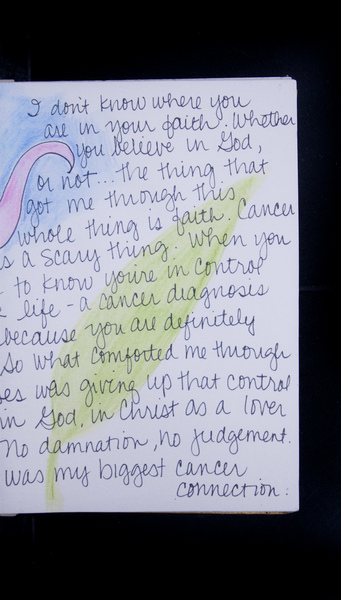 I don't know where you
are in your faith. Whether
you believe in God,
or not... the thing that
got me through this
whole thing is faith. Cancer
a scary thing. When you
to know you're in control
life - a cancer diagnosis
because you are definitely
So what comforted me through
was giving up that control
in God, in Christ as a lover
No damnation, no judgement.
was my biggest cancer
connection.